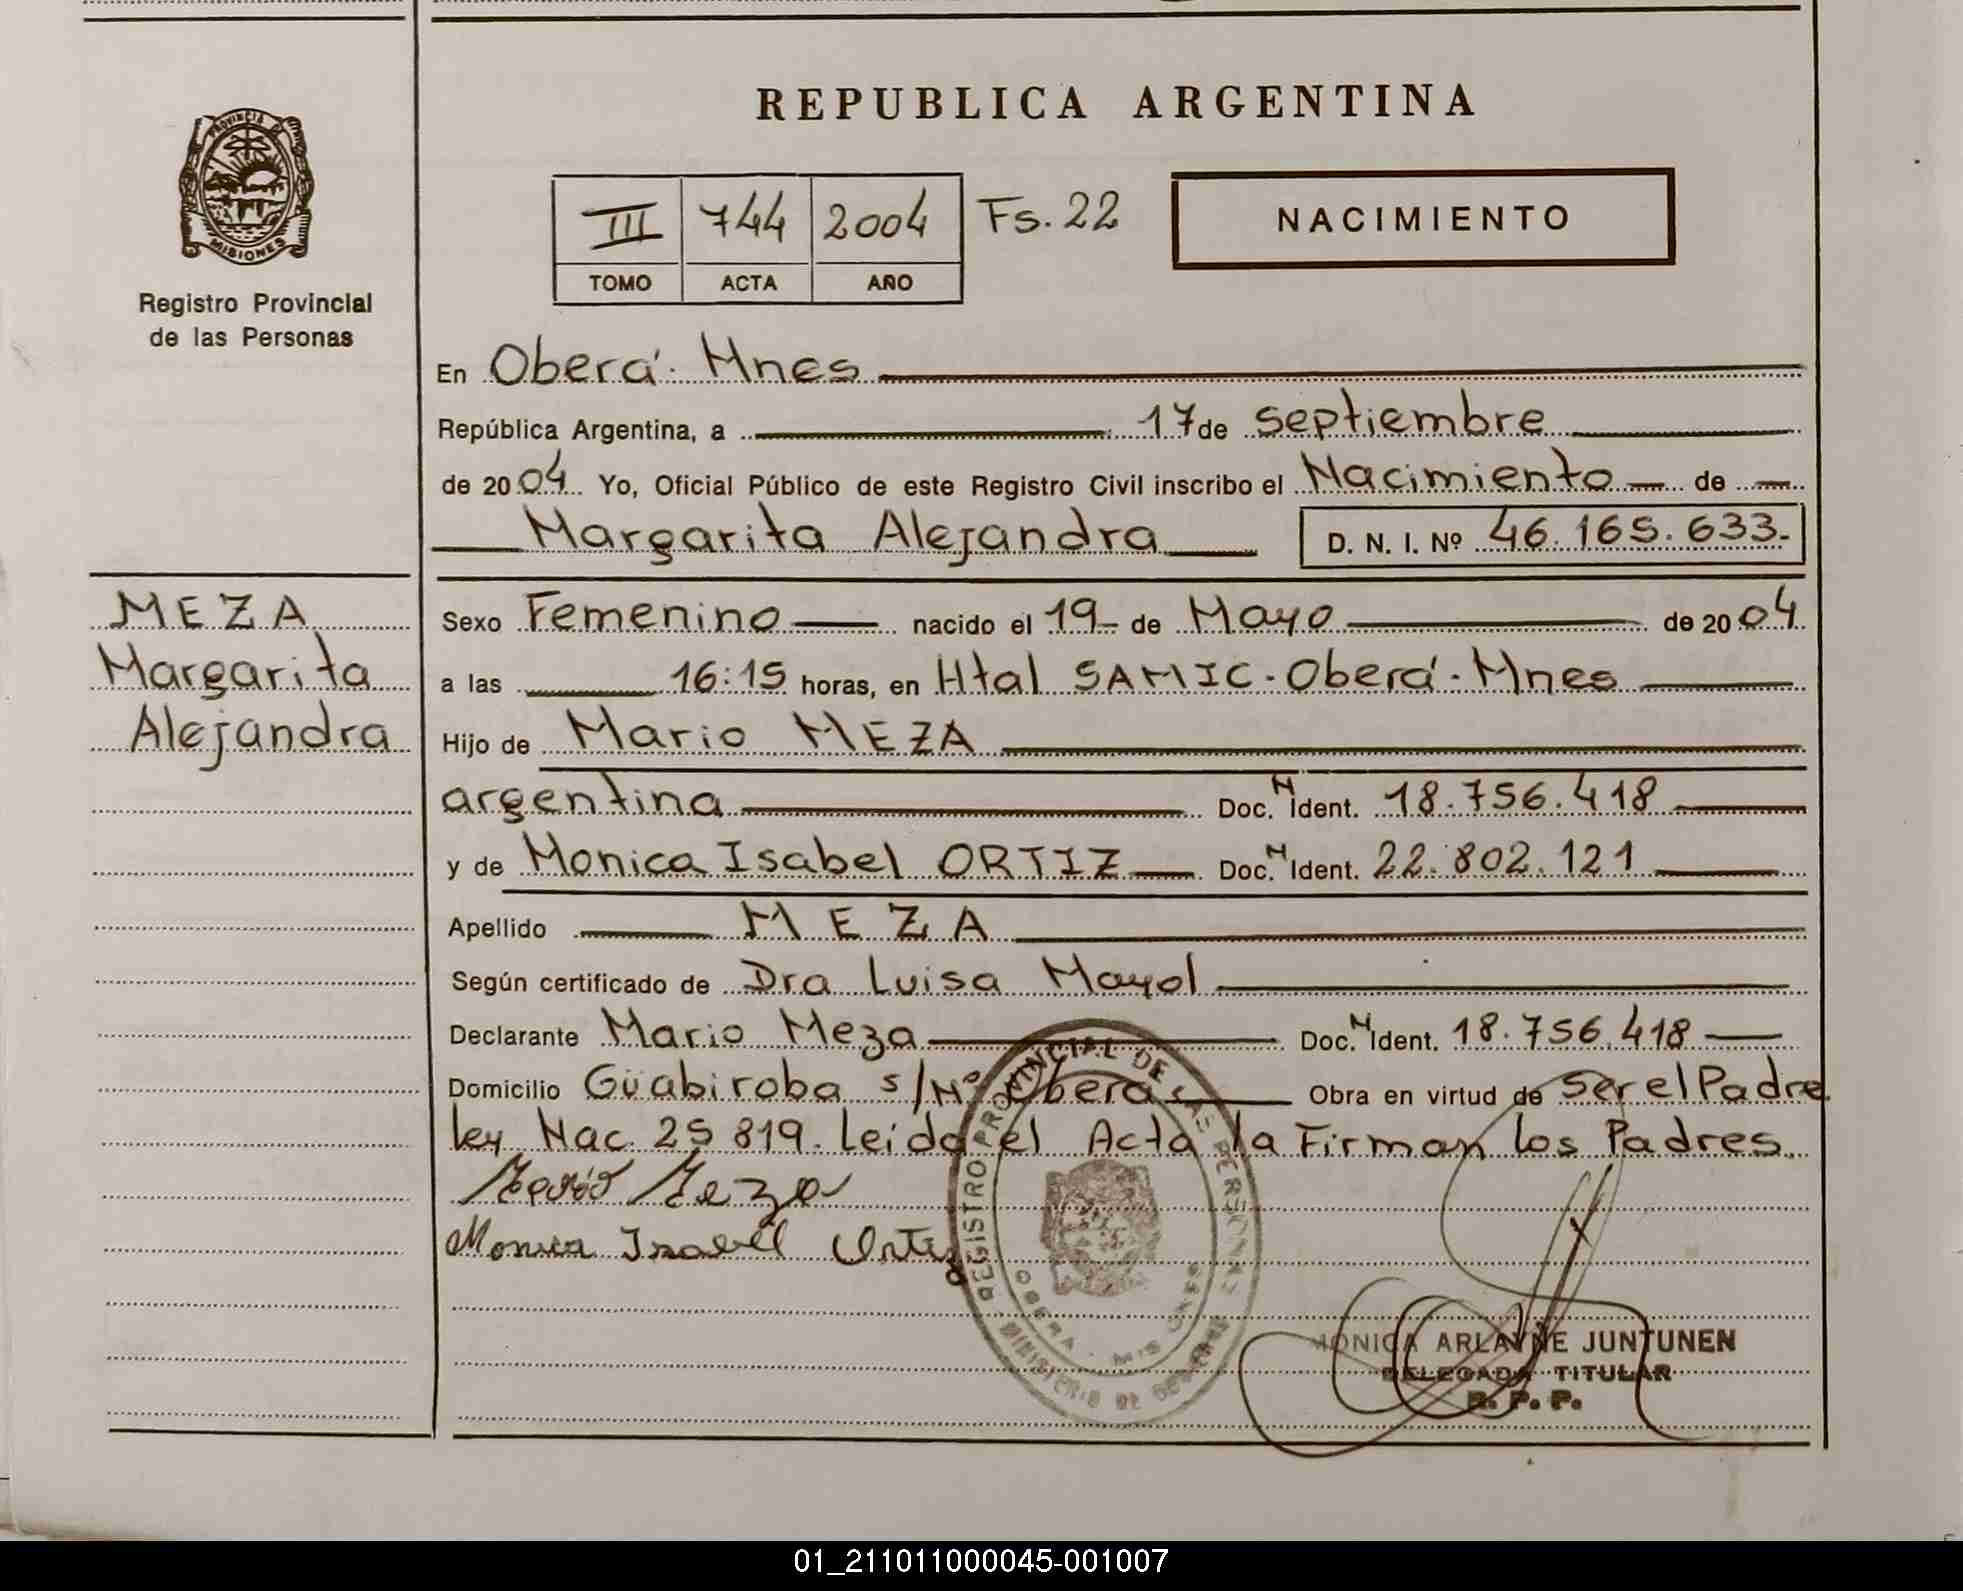 REPUBLICA ARGENTINA
PROVINCIA DE
MISIONES
Registro Provincial
de las Personas
III 744 2004 Fs. 22
TOMO ACTA AÑO
NACIMIENTO
En Oberá - Mnes
República Argentina, a 17 de septiembre
de 2004 Yo, Oficial Público de este Registro Civil inscribo el Nacimiento de
Margarita Alejandra D. N. I. Nº 46.165.633.-
MEZA
Margarita
Alejandra
Sexo Femenino nacido el 19 de Mayo de 2004
a las 16:15 horas, en Htal SAMIC - Oberá - Mnes
Hijo de Mario MEZA
argentina Doc. N Ident. 18.756.418
y de Monica Isabel ORTIZ Doc. N Ident. 22.802.121
Apellido MEZA
Según certificado de Dra Luisa Mayol
Declarante Mario Meza Doc. N Ident. 18.756.418
Domicilio Güabiroba s/Nº Oberá Obra en virtud de ser el Padre
ley Nac. 25 819. Leida el Acta la Firman los Padres.
Mario Meza
Monica Isabel Ortiz
REGISTRO PROVINCIAL DE LAS PERSONAS
OBERA - MISIONES
MINISTERIO DE GOBIERNO
MONICA ARLAYNE JUNTUNEN
DELEGADA TITULAR
R. P. P.
01_211011000045-001007